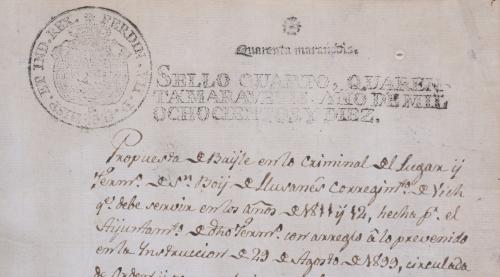 FERDIN. VII. D. G. HISP. ET IND. REX.
Quarenta maravedis.
SELLO QUARTO, QUAREN-
TA MARAVEDIS, AÑO DE MIL
OCHOCIENTOS Y DIEZ.
Propuesta de Bayle en lo Criminal del Lugar y
term.º de S.n Boy de Llusanés Corregim.to de Vich
q.e debe servir en los años de 1811 y 12, hecha p.r el
Ayuntam.to de dho term.º con arreglo à lo prevenido
en la Instruccion de 29 de Agosto de 1899, circulada
de Orden